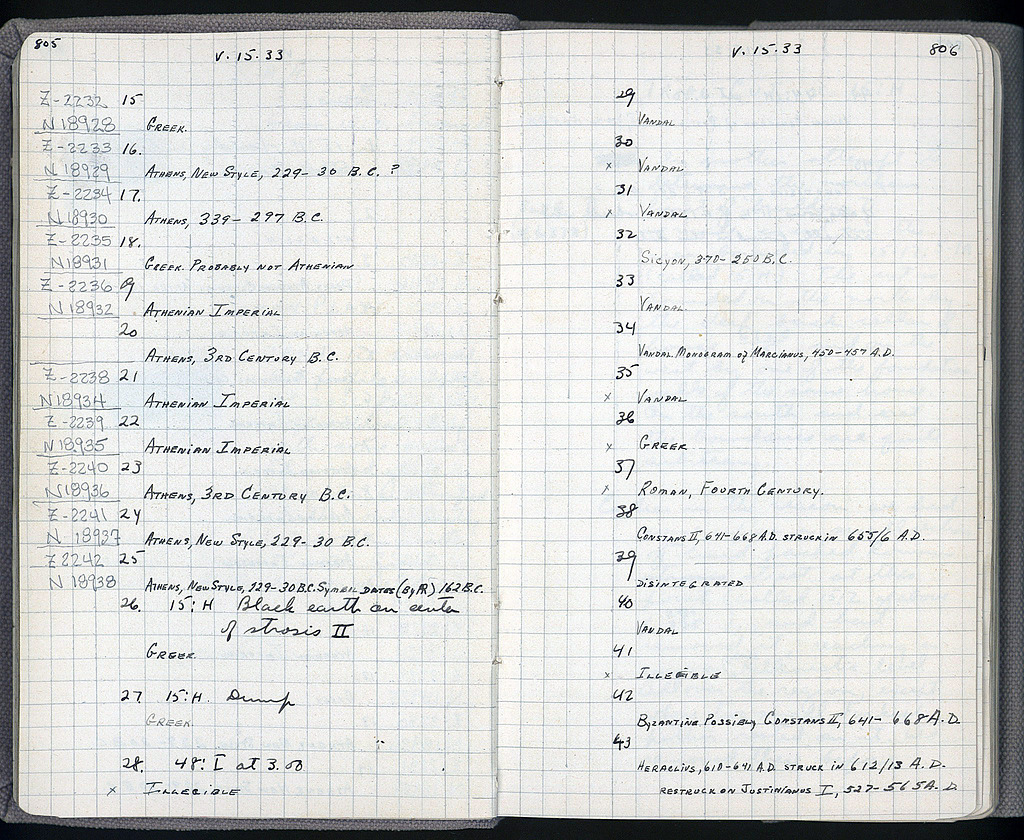 805
V. 15. 33
Z-2232 15
N 18928 GREEK.
Z-2233 16.
N 18929 ATHENS, NEW STYLE, 229- 30 B.C. ?
Z-2234 17.
N 18930 ATHENS, 339- 297 B.C.
Z-2235 18.
N 18931 GREEK. PROBABLY NOT ATHENIAN
Z-2236 19
N 18932 ATHENIAN IMPERIAL
20
ATHENS, 3RD CENTURY B.C.
Z-2238 21
N 18934 ATHENIAN IMPERIAL
Z-2239 22
N 18935 ATHENIAN IMPERIAL
Z-2240 23
N 18936 ATHENS, 3RD CENTURY B.C.
Z-2241 24
N 18937 ATHENS, NEW STYLE, 229- 30 B.C.
Z 2242 25
N 18938 ATHENS, NEW STYLE, 229-30 B.C. SYMBOL DATES (BY R) 162 B.C.
26. 15:H Black earth on center
of strosis II
GREEK.
27. 15:H. Dump
GREEK.
28. 48: I at 3.00
x ILLEGIBLE
V. 15. 33
806
29
VANDAL
30
x VANDAL
31
x VANDAL
32
SICYON, 370- 250 B.C.
33
VANDAL.
34
VANDAL. MONOGRAM OF MARCIANUS, 450-457 A.D.
35
x VANDAL
36
x GREEK
37
x ROMAN, FOURTH CENTURY.
38
CONSTANS II, 641-668 A.D. STRUCK IN 655/6 A.D.
39
DISINTEGRATED
40
VANDAL
41
x ILLEGIBLE
42
BYZANTINE. POSSIBLY CONSTANS II, 641- 668 A.D.
43
HERACLIUS, 610-641 A.D. STRUCK IN 612/13 A.D.
RESTRUCK ON JUSTINIANUS I, 527-565 A.D.